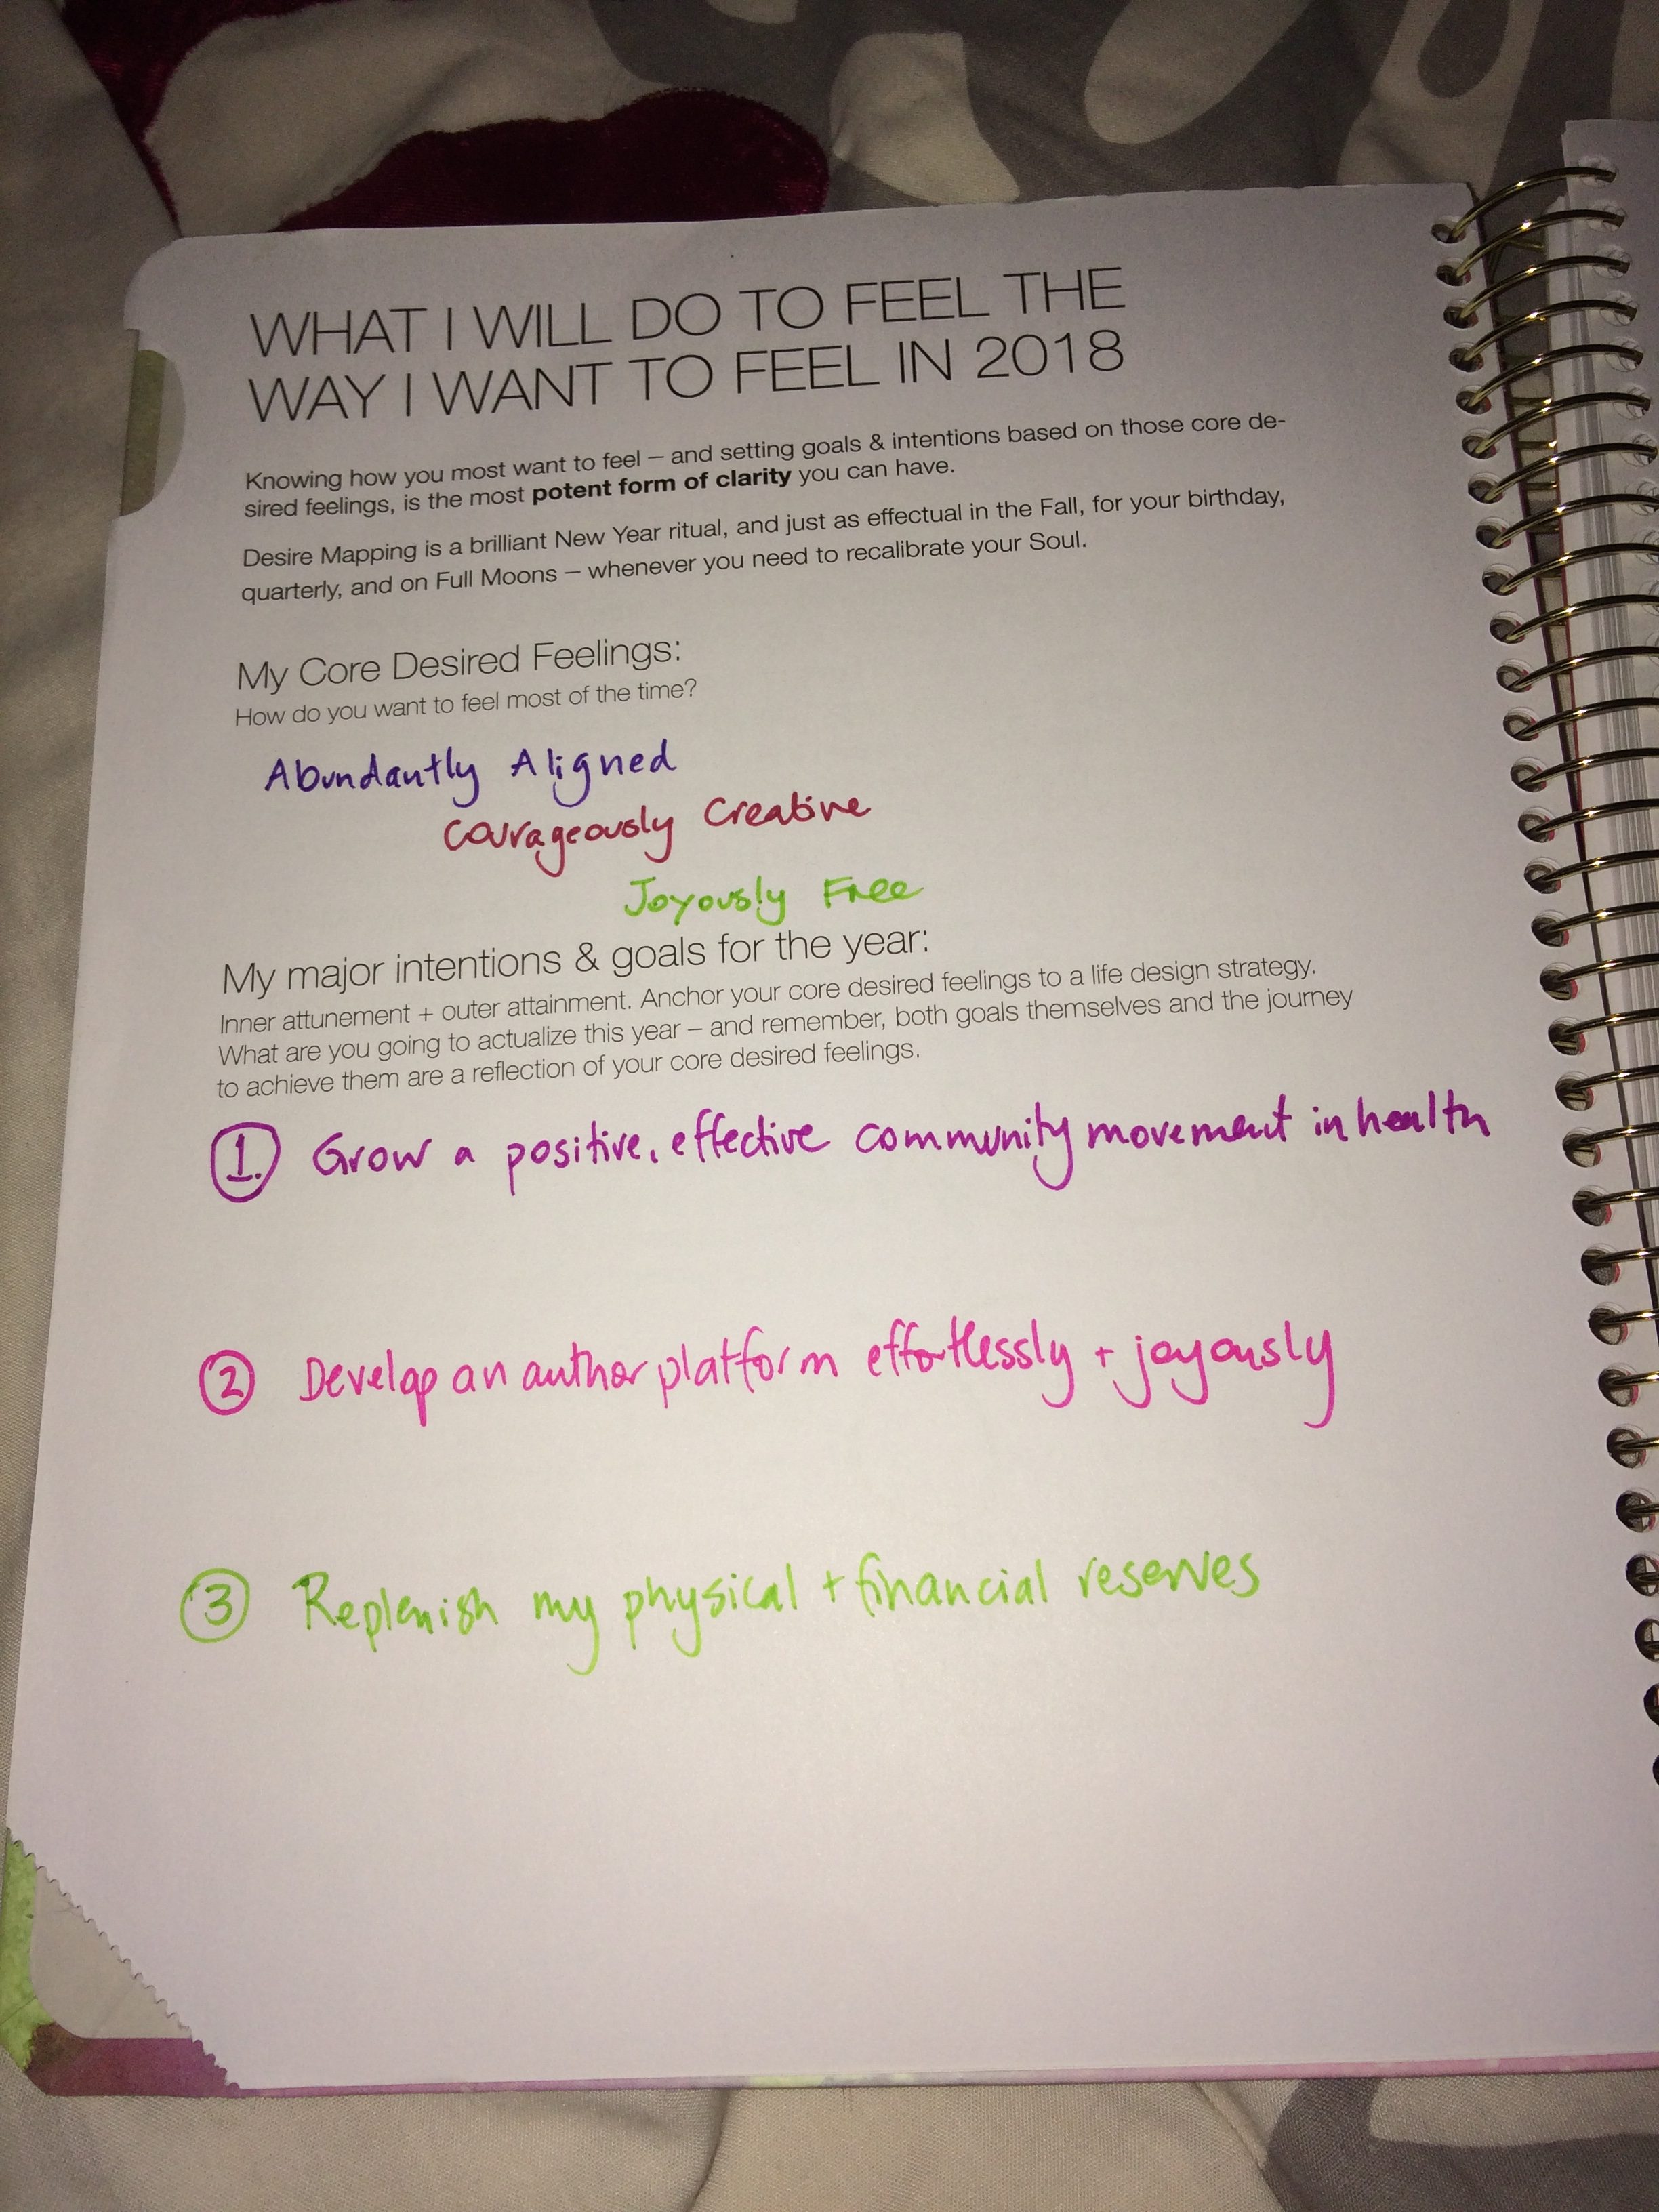 WHAT I WILL DO TO FEEL THE
WAY I WANT TO FEEL IN 2018
Knowing how you most want to feel – and setting goals & intentions based on those core de-
sired feelings, is the most potent form of clarity you can have.
Desire Mapping is a brilliant New Year ritual, and just as effectual in the Fall, for your birthday,
quarterly, and on Full Moons – whenever you need to recalibrate your Soul.
My Core Desired Feelings:
How do you want to feel most of the time?
Abundantly Aligned
Courageously Creative
Joyously Free
My major intentions & goals for the year:
Inner attunement + outer attainment. Anchor your core desired feelings to a life design strategy.
What are you going to actualize this year – and remember, both goals themselves and the journey
to achieve them are a reflection of your core desired feelings.
1. Grow a positive, effective community movement in health
2 Develop an author platform effortlessly + joyously
3 Replenish my physical + financial reserves